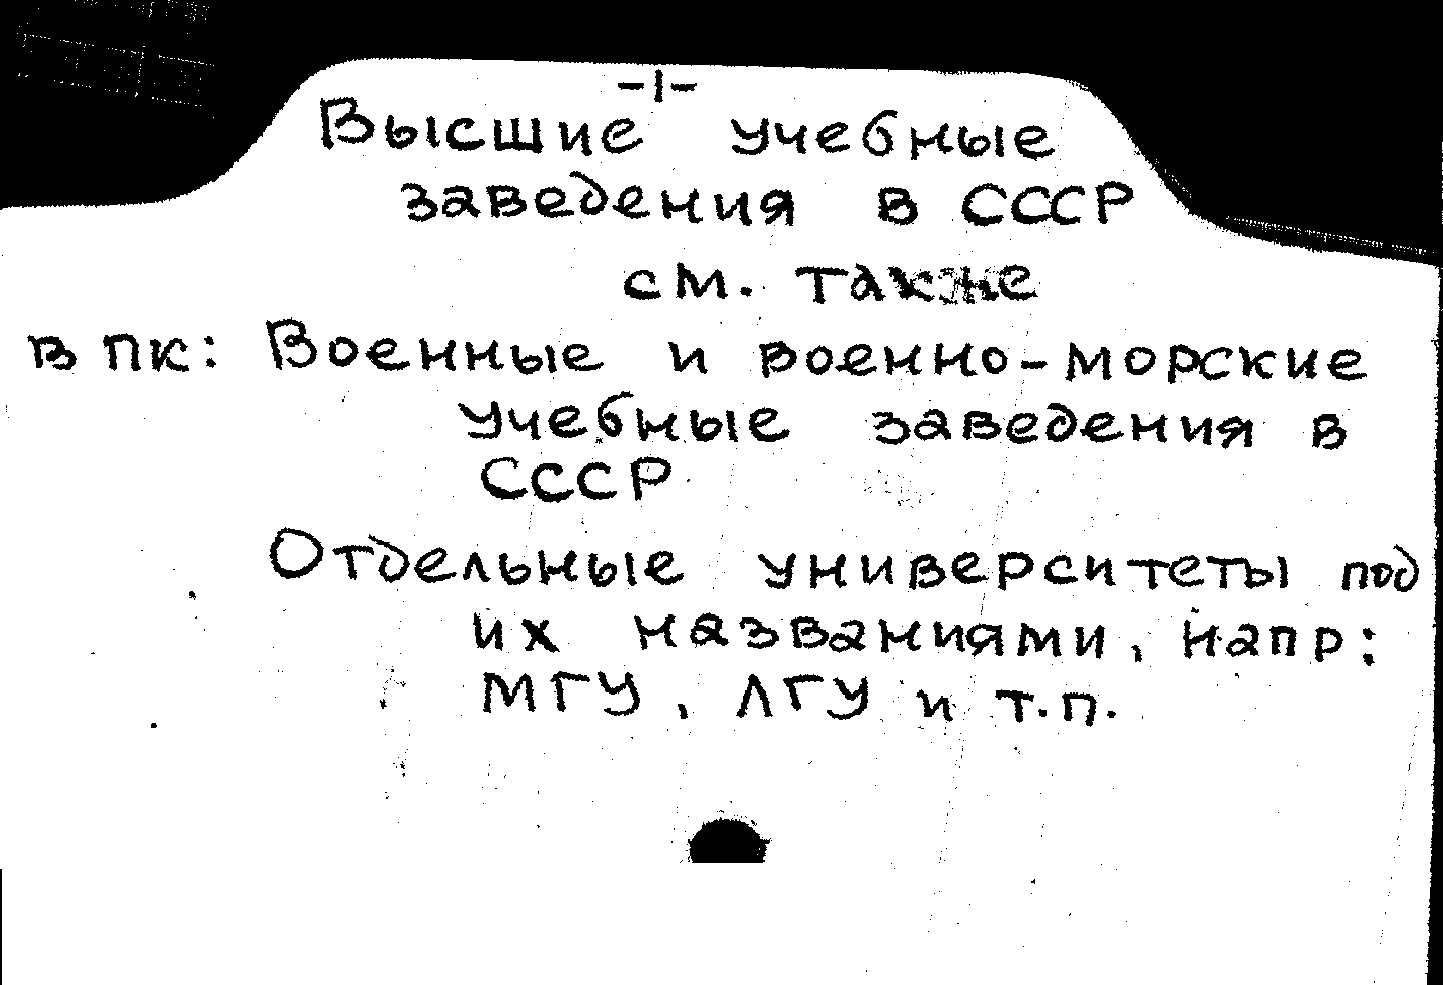 -1-
Высшие учебные
заведения в СССР
см. также
в ПК: Военные и военно-морские
учебные заведения в
СССР
Отдельные университеты под
их названиями, напр:
МГУ, ЛГУ и т.п.